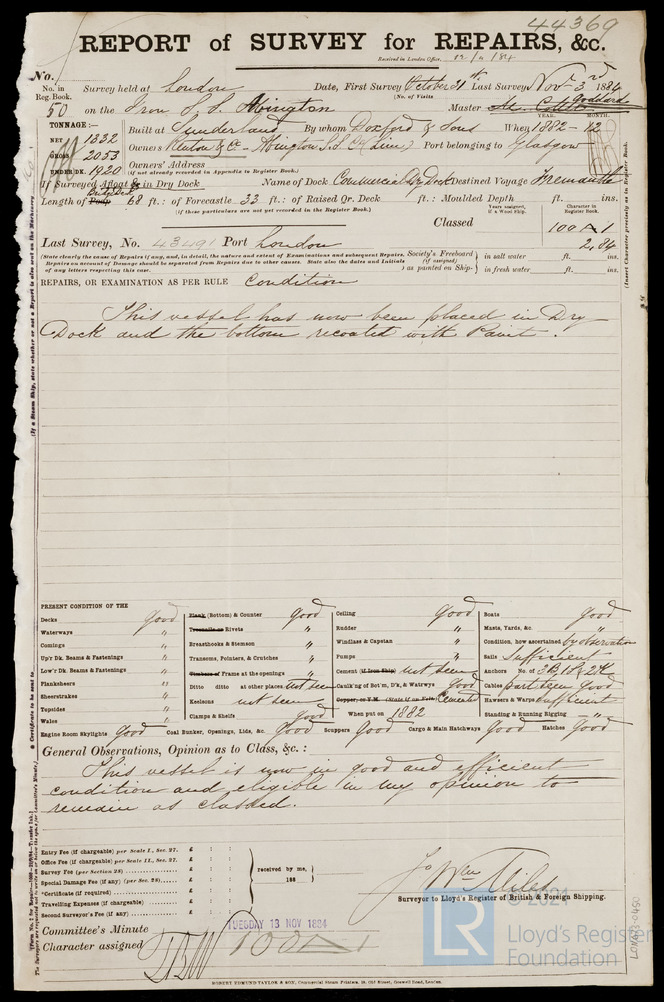 44369
REPORT of SURVEY for REPAIRS, &c.
Received in London Office,
No.
No. in Reg. Book. Survey held at London Date, First Survey October 31st Last Survey Nov. 3rd 1884
(No. of Visits
50 on the Iron S.S. Abington Master Goddard
TONNAGE:— YEAR. MONTH.
NET 1332 Built at Sunderland By whom Doxford & Sons When 1882 - 12
GROSS 2053 Owners & Co - Abington S.S. Co (Lim) Port belonging to Glasgow
UNDER DK. 1920 Owners' Address
(If not already recorded in Appendix to Register Book.)
If Surveyed Afloat or in Dry Dock Name of Dock Commercial Dry Dock Destined Voyage Fremantle
Length of Poop 68 ft.: of Forecastle 33 ft.: of Raised Qr. Deck ft.: Moulded Depth ft. ins.
(If these particulars are not yet recorded in the Register Book.)
Years assigned, if a Wood Ship. Character in Register Book.
Classed 100 A 1
2,84
Last Survey, No. 43491 Port London
(State clearly the cause of Repairs if any, and, in detail, the nature and extent of Examinations and subsequent Repairs.
Repairs on account of Damage should be separated from Repairs due to other causes. State also the dates and Initials
of any letters respecting this case.
Society's Freeboard (if assigned) as painted on Ship- in salt water ft. ins.
in fresh water ft. ins.
(Insert Character precisely as in Register Book.
REPAIRS, OR EXAMINATION AS PER RULE Condition
This vessel has now been placed in Dry
Dock and the bottom recoated with Paint.
PRESENT CONDITION OF THE
Decks good
Waterways "
Comings "
Up'r Dk. Beams & Fastenings "
Low'r Dk. Beams & Fastenings "
Planksheers "
Sheerstrakes "
Topsides "
Wales "
Engine Room Skylights Good
Plank (Bottom) & Counter good
Treenails or Rivets "
Breasthooks & Stemson "
Transoms, Pointers, & Crutches "
Timbers or Frame at the openings "
Ditto ditto at other places not seen
Keelsons not seen
Clamps & Shelfs Good
Coal Bunker, Openings, Lids, &c. Good
Ceiling Good
Rudder "
Windlass & Capstan "
Pumps "
Cement (if Iron Ship) not seen
Caulk'ng of Bot'm, D'k, & Watrwys Good
Copper, or Y.M. (State if on Felt) Cement
When put on 1882
Scuppers Good Cargo & Main Hatchways Good Hatches Good
Boats good
Masts, Yards, &c "
Condition, how ascertained by observation
Sails Sufficient
Anchors No. of 3B, 1S & 2K
Cables part seen good
Hawsers & Warps sufficient
Standing & Running Rigging "
General Observations, Opinion as to Class, &c.:
This vessel is now in good and efficient
condition and eligible in my opinion to
remain as classed.
Entry Fee (if chargeable) per Scale I., Sec. 27. £ : :
Office Fee (if chargeable) per Scale II., Sec. 27. £ : :
Survey Fee (per Section 28) £ : :
Special Damage Fee (if any) (per Sec. 28) £ : :
*Certificate (if required) £ : :
Travelling Expenses (if chargeable) £ : :
Second Surveyor's Fee (if any) £ : :
received by me,
188
Surveyor to Lloyd's Register of British & Foreign Shipping.
Committee's Minute TUESDAY 13 NOV 1884
Character assigned 100A
ROBERT EDMUND TAYLOR & SON, Commercial Steam Printers, 19, Old Street, Goswell Road, London.
LR
© 2021
Lloyd's Register
Foundation